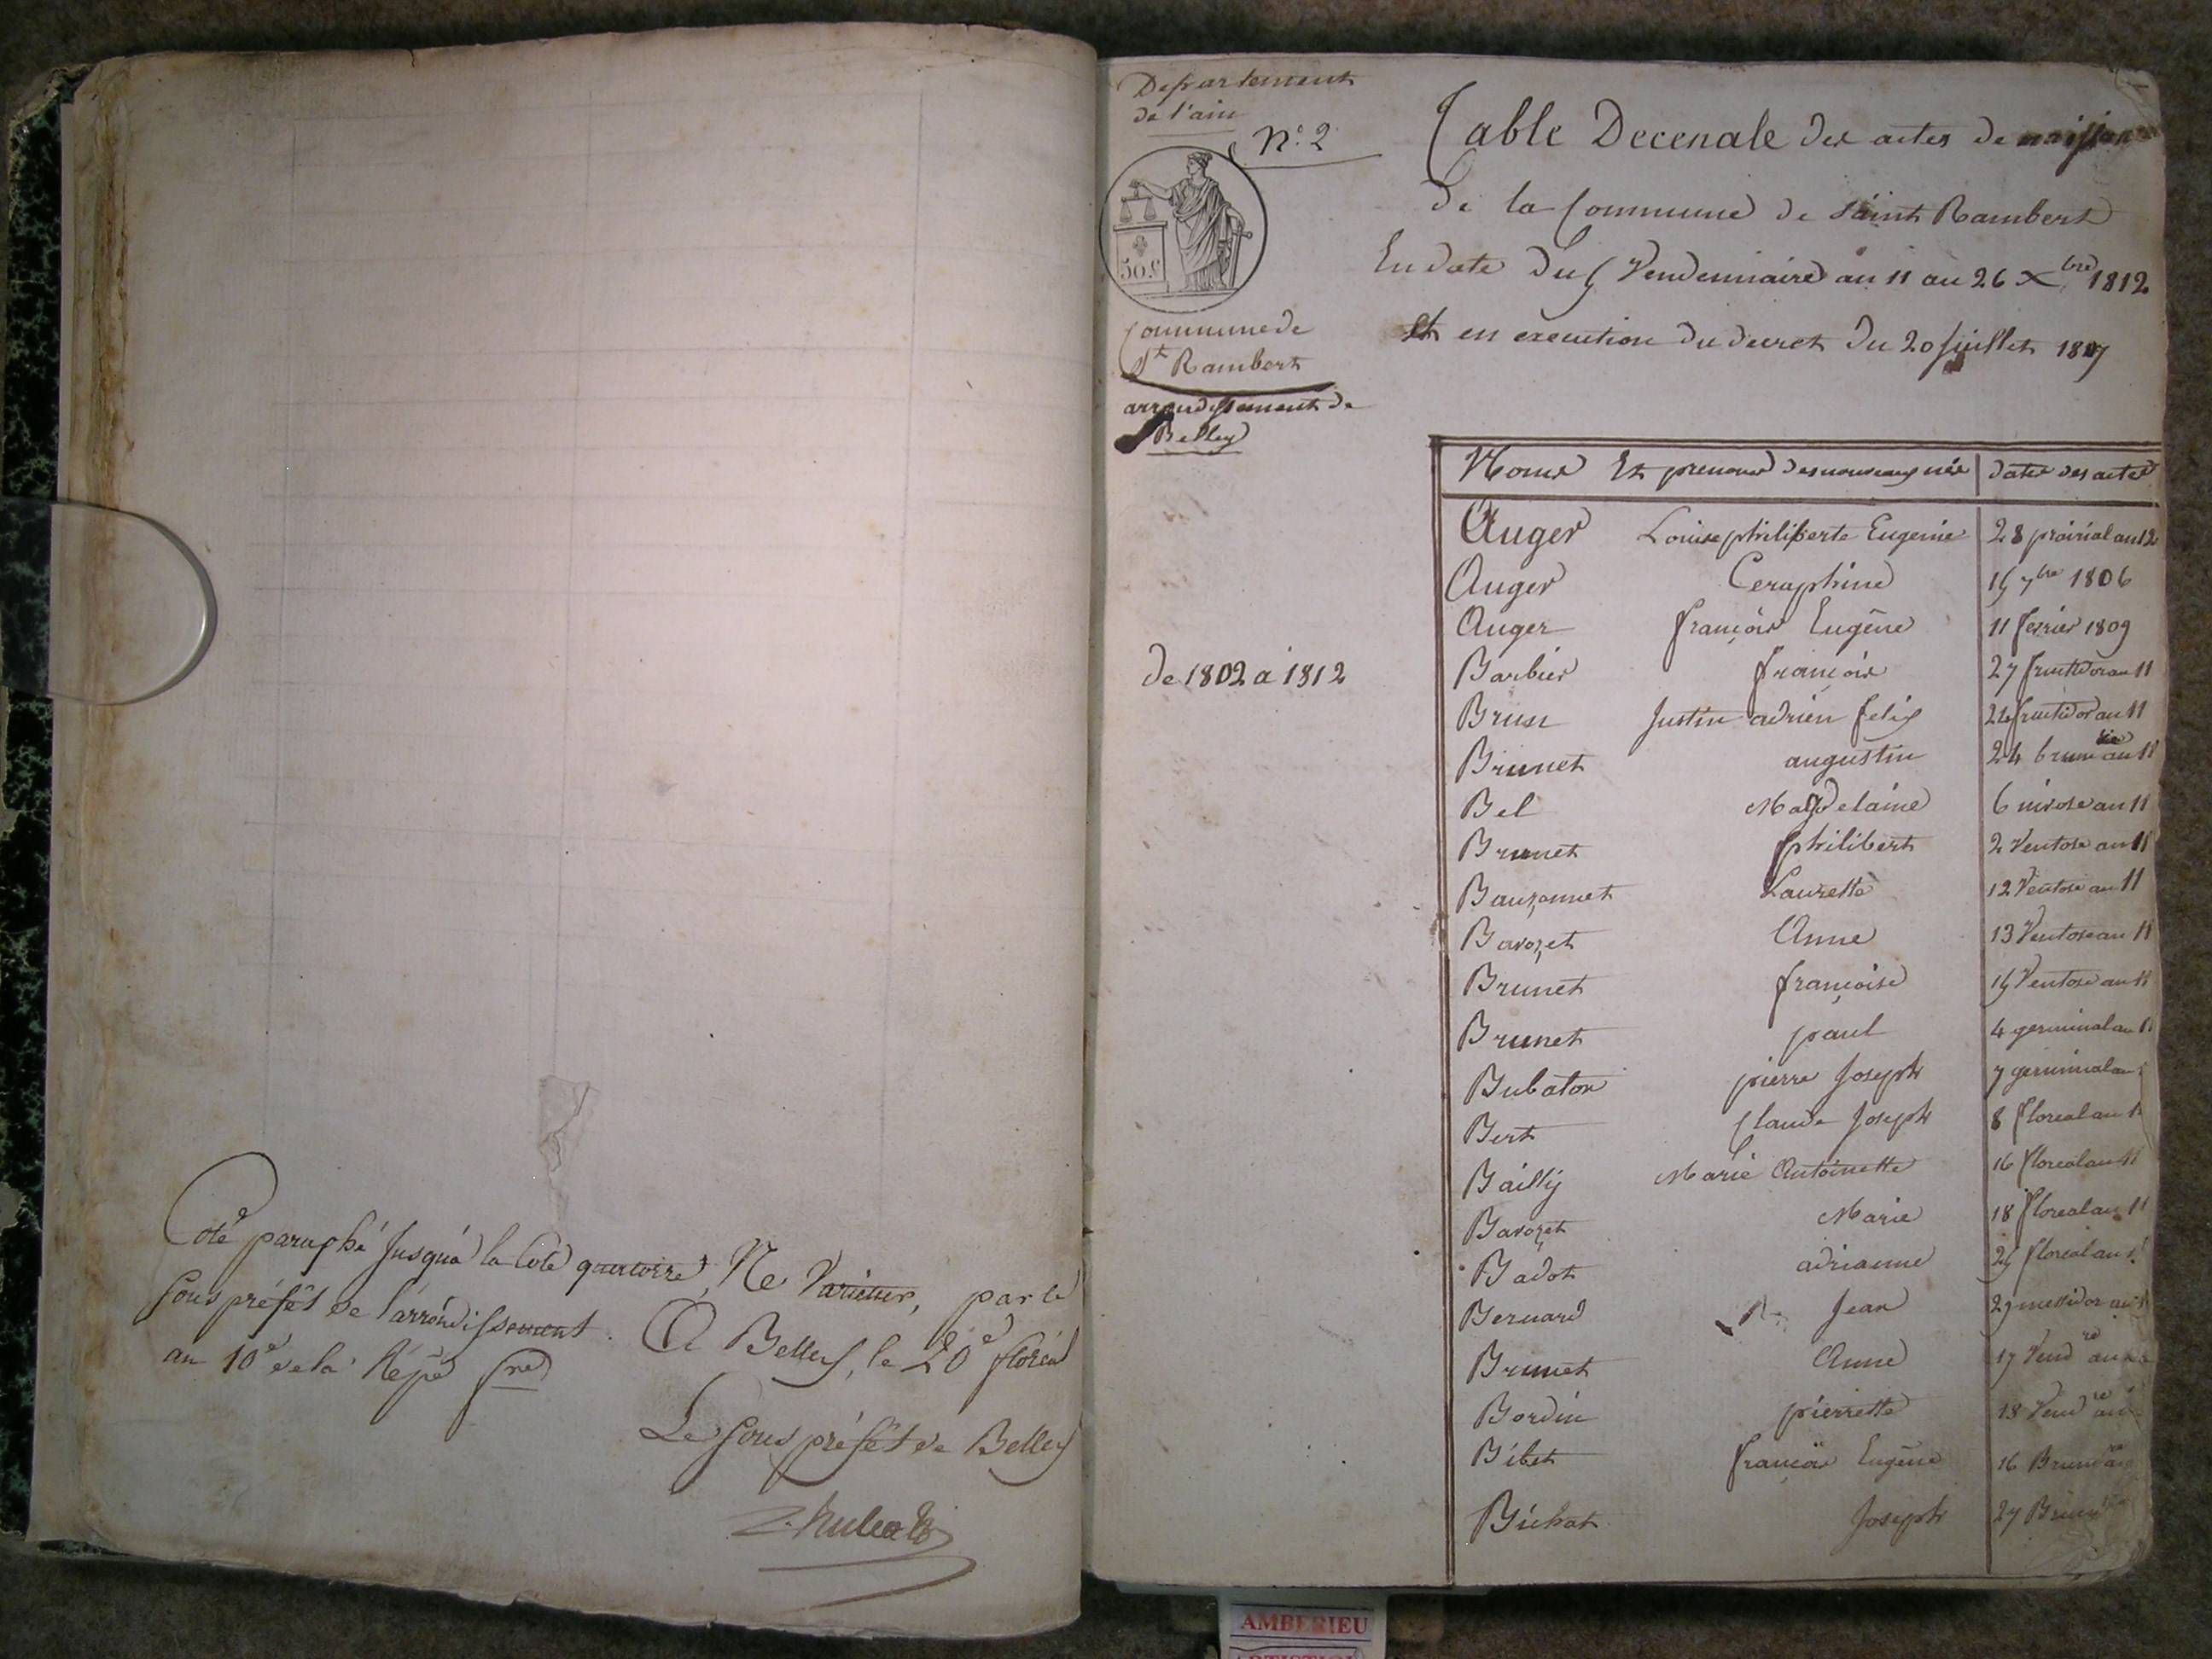 Coté paraphé jusqu'à la cote quatorze, Ne Varietur, par le
sous préfét de l'arrondissement. A Belley, le 20e floréal
an 10e de la Répe fse
Le sous préfét de Belley
Departement
de l'ain
N.o 2
50.c
Commune de
St Rambert
arrondissement de
Belley
de 1802 a 1812
Table Decenale des actes de naissance
de la Commune de saint Rambert
En date du 5 Vendemiaire an 11 au 26 Xbre 1812
Et en execution du decret du 20 juillet 1807
Noms Et prenoms des nouveaux nés dates des actes
Auger Louise philiberte Eugenie 28 prairial an 12
Auger Ceraphine 15 7bre 1806
Auger françois Eugêne 11 fevrier 1809
Barbier françois 27 fructidor an 11
Brun Justin adrien felix fructidor an 11
Brunet augustin 24 brumaire an 11
Bel Magdelaine 6 nivose an 11
Brunet philibert 2 Ventose an 11
Bauzonnet Laurette 12 Ventose an 11
Bavozet Anne 13 Ventose an 11
Brunet françoise 15 Ventose an 11
Brunet paul 4 germinal an 11
Bubaton pierre Joseph 7 germinal an
Bert Claude Joseph 8 floreal an 11
Bailly Marie Antoinette 16 floreal an 11
Bavozet Marie 18 floreal an 11
Badot adrianne 25 floreal an
Bernard Jean 29 messidor an
Brunet Anne 17 Vendre an
Bordin pierrette 18 Vendre an
Bibet françois Eugêne 16 Brumre an
Bichat Joseph 27 Brum
AMBERIEU